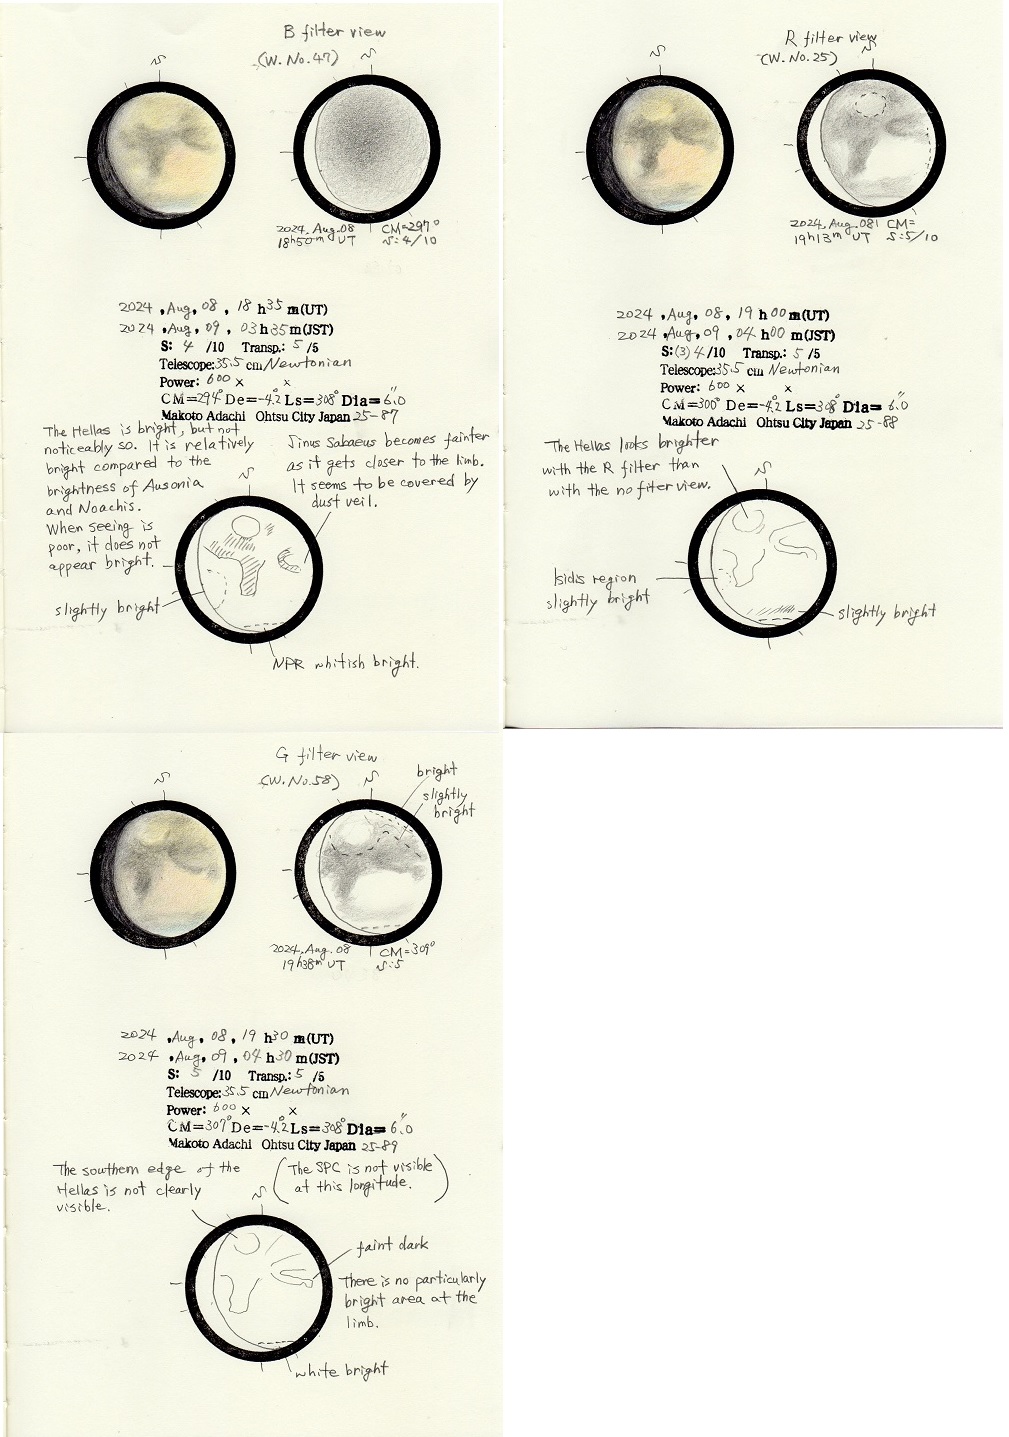 B filter view
(W. No. 47)
S
S
2024. Aug. 08 CM=297°
18h50m UT S:4/10
2024 , Aug, 08 , 18 h35 m(UT)
2024 , Aug, 09 , 03 h35 m(JST)
S: 4 /10 Transp.: 5 /5
Telescope:35.5 cm Newtonian
Power: 600 × ×
CM=294° De=-4.2° Ls=308° Dia=6.0"
Makoto Adachi Ohtsu City Japan 25-87
The Hellas is bright, but not
noticeably so. It is relatively
bright compared to the
brightness of Ausonia
and Noachis.
When seeing is
poor, it does not
appear bright.
Sinus Sabaeus becomes fainter
as it gets closer to the limb.
It seems to be covered by
dust veil.
S
slightly bright
NPR whitish bright.
R filter view
(W. No. 25)
S
S
2024, Aug, 08 CM=
19h13m UT S:5/10
2024 , Aug, 08 , 19 h00 m(UT)
2024 , Aug, 09 , 04 h00 m(JST)
S:(3)4/10 Transp.: 5 /5
Telescope:35.5 cm Newtonian
Power: 600 × ×
CM=300° De=-4.2° Ls=308° Dia=6.0"
Makoto Adachi Ohtsu City Japan 25-88
The Hellas looks brighter
with the R filter than
with the no fiter view.
S
Isidis region
slightly bright
slightly bright
G filter view
(W. No. 58)
S
S
bright
slightly
bright
2024. Aug. 08 CM=309°
19h38m UT S:5
2024 , Aug, 08 , 19 h30 m(UT)
2024 , Aug, 09 , 04 h30 m(JST)
S: 5 /10 Transp.: 5 /5
Telescope:35.5 cm Newtonian
Power: 600 × ×
CM=307° De=-4.2° Ls=308° Dia=6.0"
Makoto Adachi Ohtsu City Japan 25-89
The southern edge of the
Hellas is not clearly
visible.
(The SPC is not visible
at this longitude.)
S
faint dark
There is no particularly
bright area at the
limb.
white bright